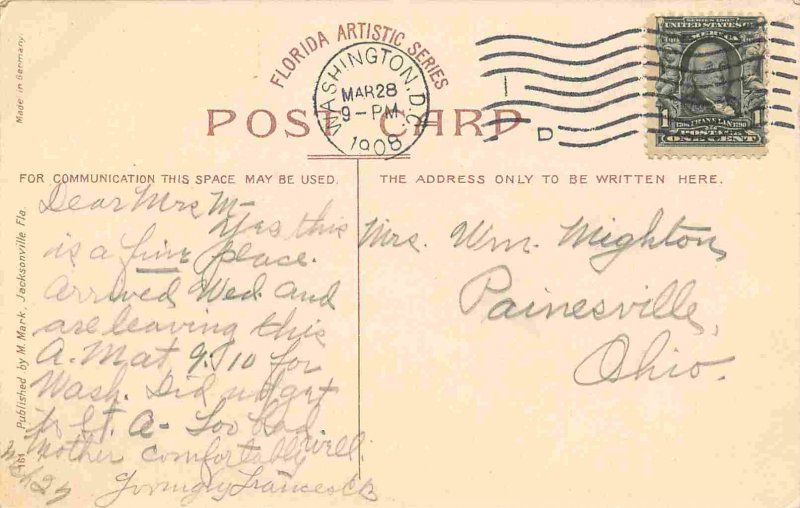 FLORIDA ARTISTIC SERIES
WASHINGTON, D.C.
MAR 28
9 - PM
1908
D
SERIES 1902
UNITED STATES OF
AMERICA
FRANKLIN 1790
1 POSTAGE 1
ONE CENT
POST CARD
FOR COMMUNICATION THIS SPACE MAY BE USED.
THE ADDRESS ONLY TO BE WRITTEN HERE.
Made in Germany.
161 Published by M. Mark, Jacksonville Fla.
Dear Mrs M-
Yes this
is a fine place.
Arrived Wed. and
are leaving this
A.M at 9.10 for
Wash. Did not get
to St. A- Too bad
Mother comfortably well
Lovingly Frances
Mrs. Wm. Mighton,
Painesville,
Ohio.